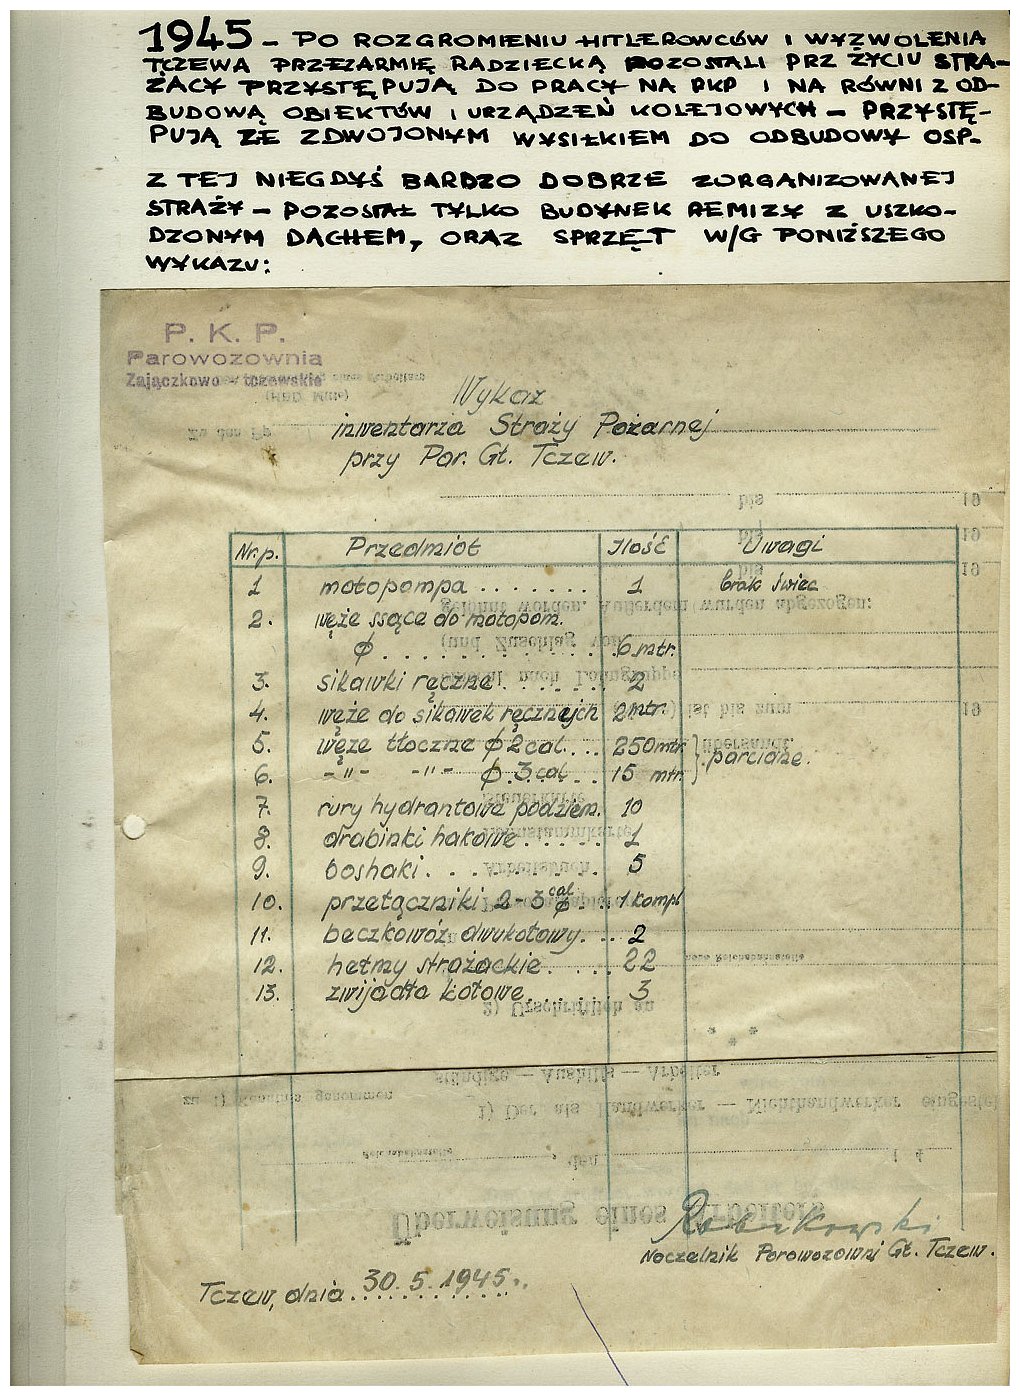 1945 - PO ROZGROMIENIU HITLEROWCÓW I WYZWOLENIA
TCZEWA PRZEZ ARMIĘ RADZIECKĄ POZOSTALI PRZ ŻYCIU STRA-
ŻACY PRZYSTĘPUJĄ DO PRACY NA PKP I NA RÓWNI Z OD-
BUDOWĄ OBIEKTÓW I URZĄDZEŃ KOLEJOWYCH - PRZYSTĘ-
PUJĄ ZE ZDWOJONYM WYSIŁKIEM DO ODBUDOWY OSP.
Z TEJ NIEGDYŚ BARDZO DOBRZE ZORGANIZOWANEJ
STRAŻY - POZOSTAŁ TYLKO BUDYNEK REMIZY Z USZKO-
DZONYM DACHEM, ORAZ SPRZĘT W/G PONIŻSZEGO
WYKAZU:
P. K. P.
Parowozownia
Zajączkowo - tczewskie
Wykaz
inwentarza Straży Pożarnej
przy Par. Gł. Tczew.
Nr.p. Przedmiot Ilość Uwagi
1 motopompa ....... 1 brak świec
2. węże ssące do motopom.
φ ............. 6 mtr.
3. sikawki ręczne ...... 2
4. węże do sikawek ręcznych 2 mtr.
5. węże tłoczne φ 2 cal... 250 mtr. } parciane.
6. -"- -"- φ 3 cal .. 15 mtr.
7. rury hydrantowe podziem. 10
8. drabinki hakowe ..... 1
9. boshaki ........ 5
10. przełączniki 2-3 cal φ .. 1 kompl
11. beczkowóz dwukołowy ... 2
12. hełmy strażackie .... 22
13. zwijadła kołowe ..... 3
Naczelnik Parowozowni Gł. Tczew.
Tczew, dnia 30. 5. 1945.
Überweisung eines Arbeiters
1) Der als Handwerker — Nichthandwerker
ständige — Aushilfs — Arbeiter
2) Urschriftlich an